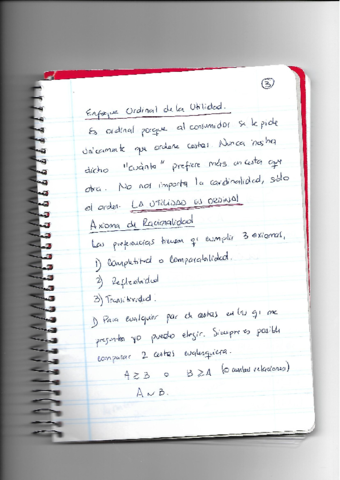 3
Enfoque Ordinal de la Utilidad.
Es ordinal porque al consumidor se le pide
únicamente que ordene cestas. Nunca nos ha
dicho "cuánto" prefiere más una cesta que
otra. No nos importa la cardinalidad, sólo
el orden. LA UTILIDAD ES ORDINAL
Axioma de Racionalidad
Las preferencias tienen q cumplir 3 axiomas,
1) Completitud o Comparabilidad.
2) Reflexividad
3) Transitividad.
1) Para cualquier par de cestas en las q me
pregunta yo puedo elegir. Siempre es posible
comparar 2 cestas cualesquiera.
A ≥ B o B ≥ A (o ambas relaciones)
A ~ B.